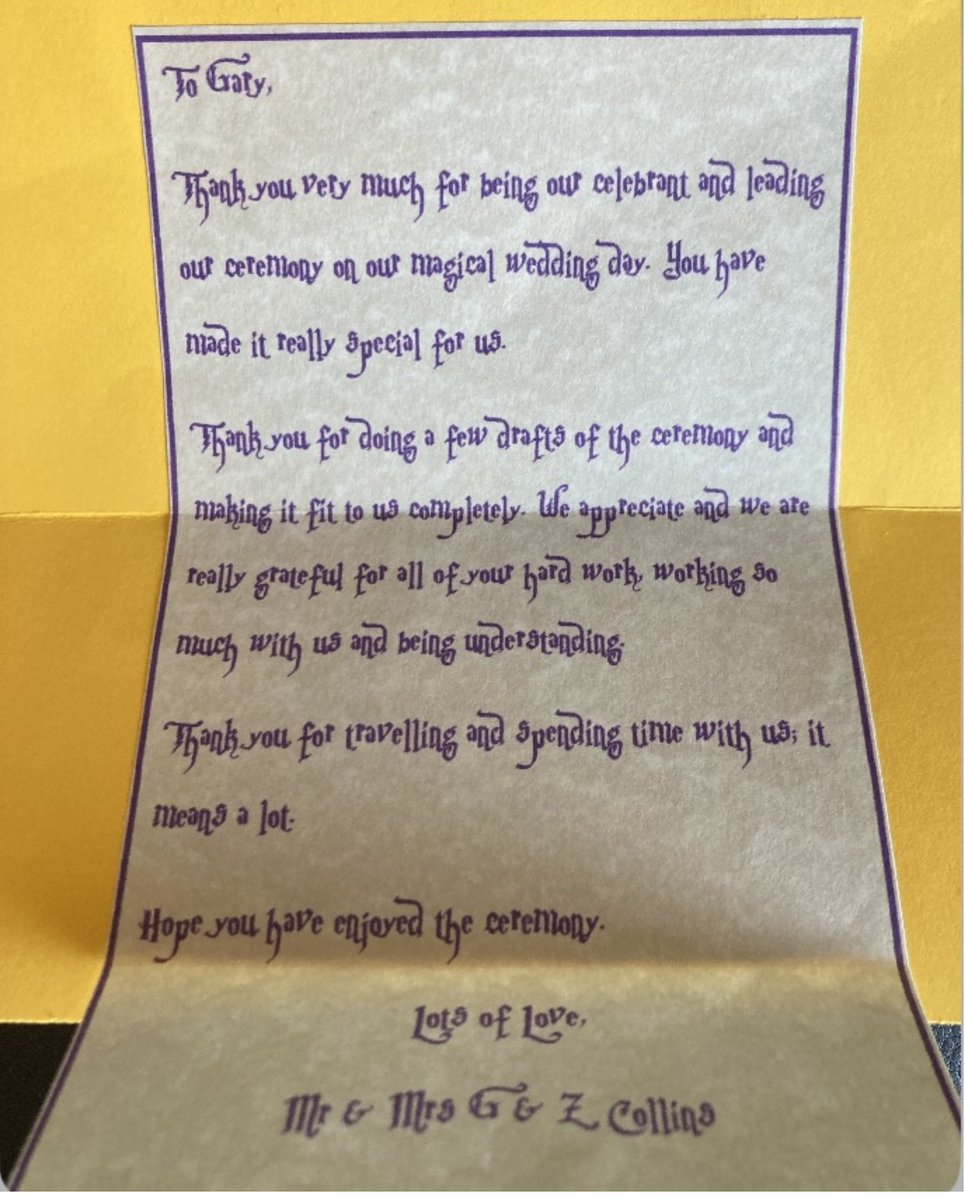 To Gary,
Thank you very much for being our celebrant and leading
our ceremony on our magical wedding day. You have
made it really special for us.
Thank you for doing a few drafts of the ceremony and
making it fit to us completely. We appreciate and we are
really grateful for all of your hard work, working so
much with us and being understanding.
Thank you for travelling and spending time with us; it
means a lot.
Hope you have enjoyed the ceremony.
Lots of Love,
Mr & Mrs G & Z Collins